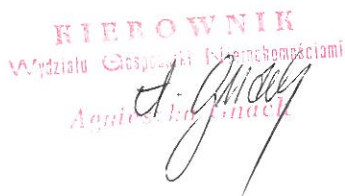 KIEROWNIK
Wydziału Gospodarki Nieruchomościami
A. Gnach
Agnieszka Gnach